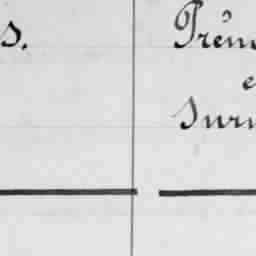 s. Prén
e
Surn